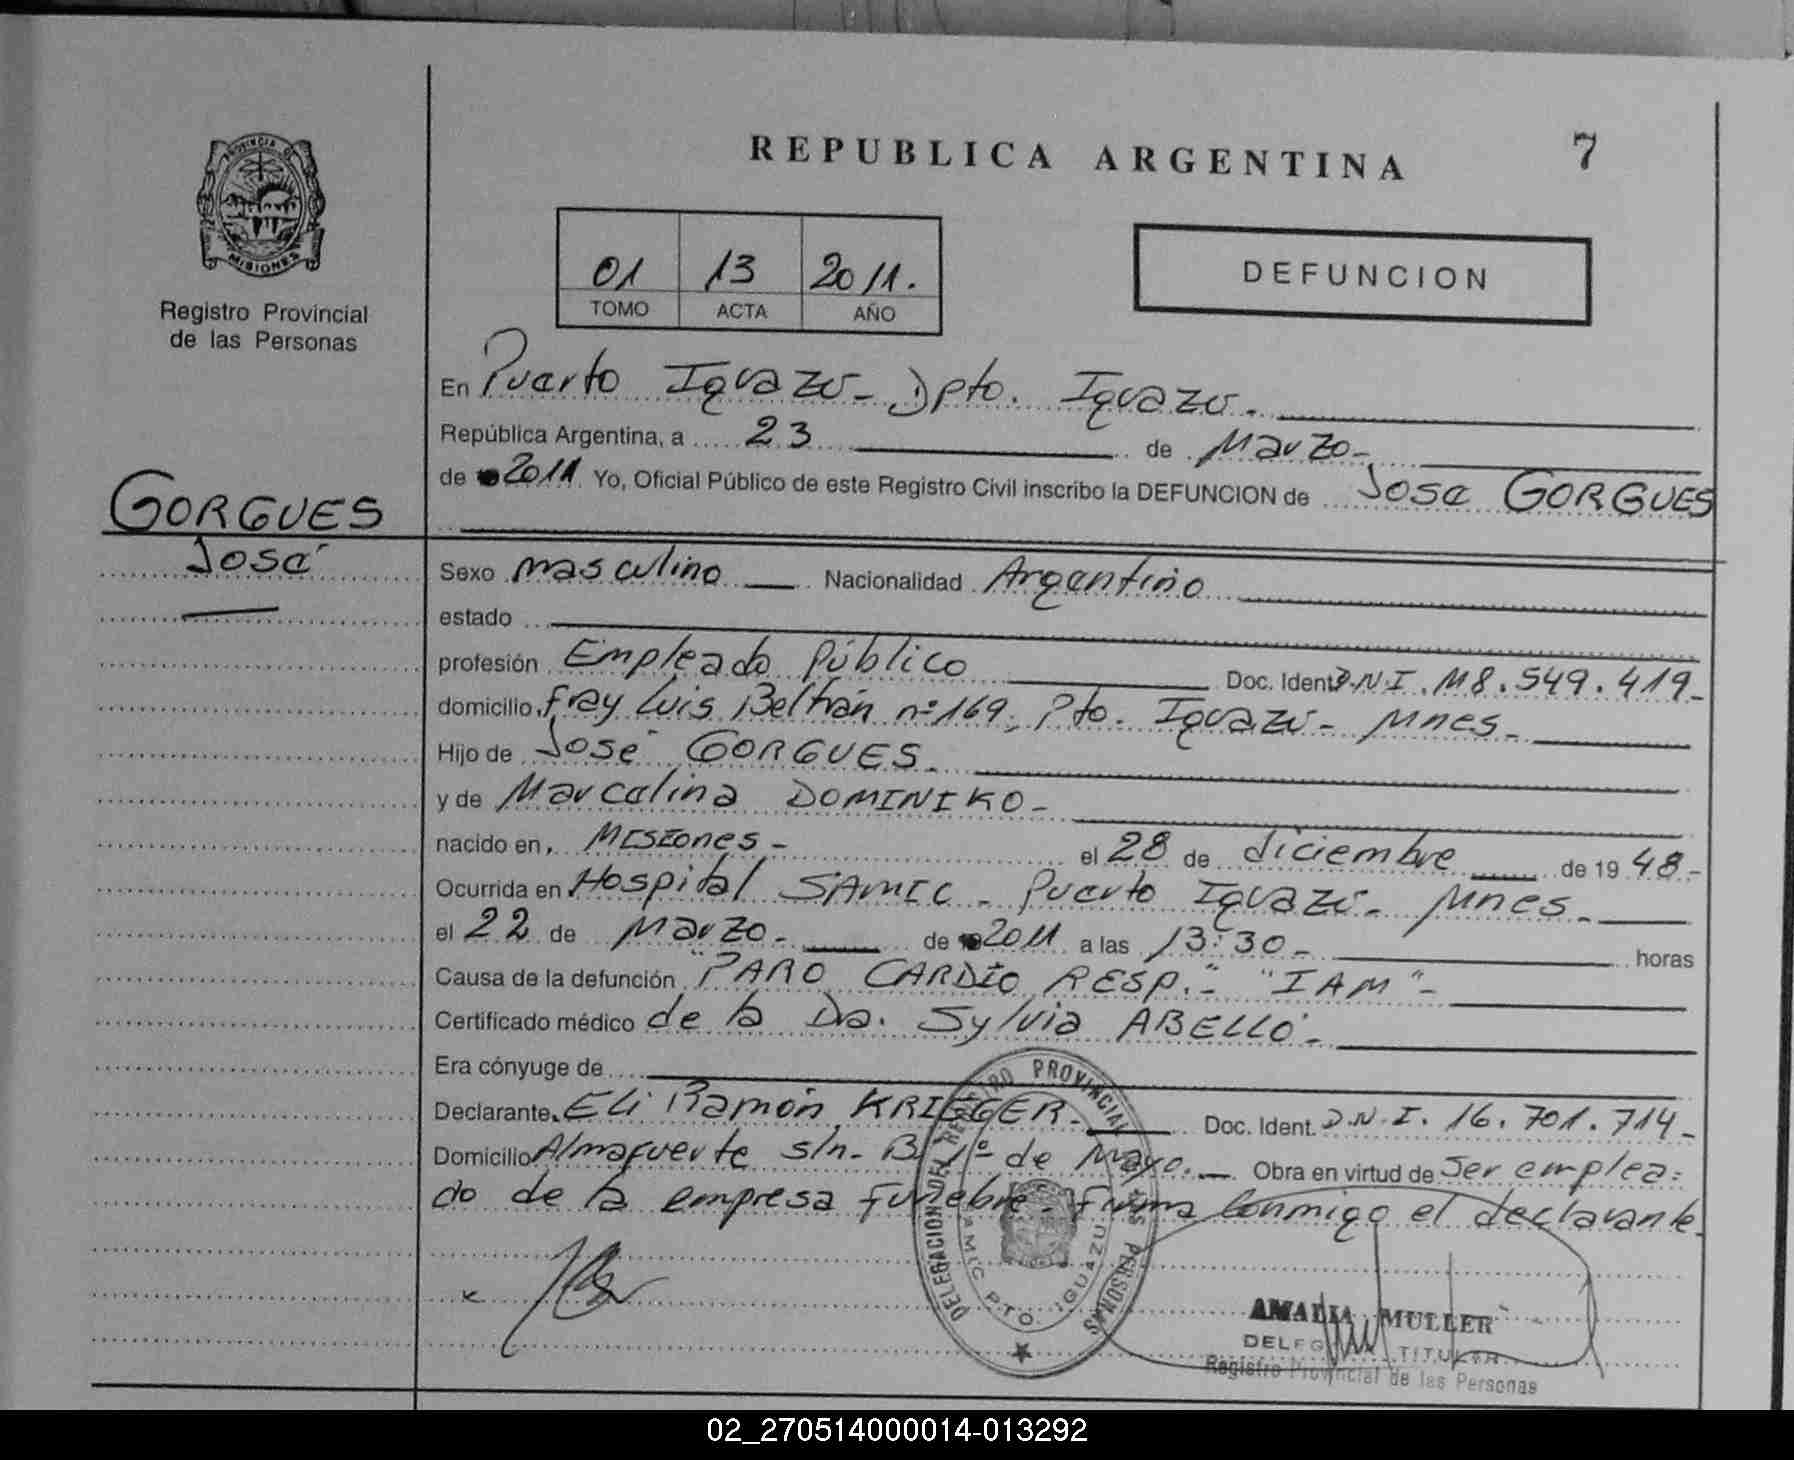 REPUBLICA ARGENTINA
7
PROVINCIA DE
MISIONES
Registro Provincial
de las Personas
01 13 2011.
TOMO ACTA AÑO
DEFUNCION
En Puerto Iguazú - Dpto. Iguazú.
República Argentina, a 23 de Marzo-
de 2011 Yo, Oficial Público de este Registro Civil inscribo la DEFUNCION de José GORGUES
GORGUES
José
Sexo masculino Nacionalidad Argentino
estado
profesión Empleado Público Doc. Ident. D.N.I. M8.549.419-
domicilio fray Luis Beltrán nº 169, Pto. Iguazú - Mnes-
Hijo de José GORGUES-
y de Marcelina DOMINIKO-
nacido en, MISIONES- el 28 de diciembre de 19 48-
Ocurrida en Hospital SAMIC - Puerto Iguazú - Mnes-
el 22 de Marzo- de 2011 a las 13:30- horas
Causa de la defunción "PARO CARDIO RESP."- "IAM"-
Certificado médico de la Dra. Sylvia ABELLO-
Era cónyuge de
Declarante. Eli Ramón KRIEGER- Doc. Ident. D.N.I. 16.701.714-
Domicilio Almafuerte s/n- Bº 1º de Mayo. Obra en virtud de Ser emplea=
do de la empresa fúnebre- Firma Conmigo el declarante.
DELEGACION DEL REGISTRO PROVINCIAL DE LAS PERSONAS
SAMIC PTO. IGUAZU
x
AMALIA MULLER
DELEGADA TITULAR
Registro Provincial de las Personas
02_270514000014-013292